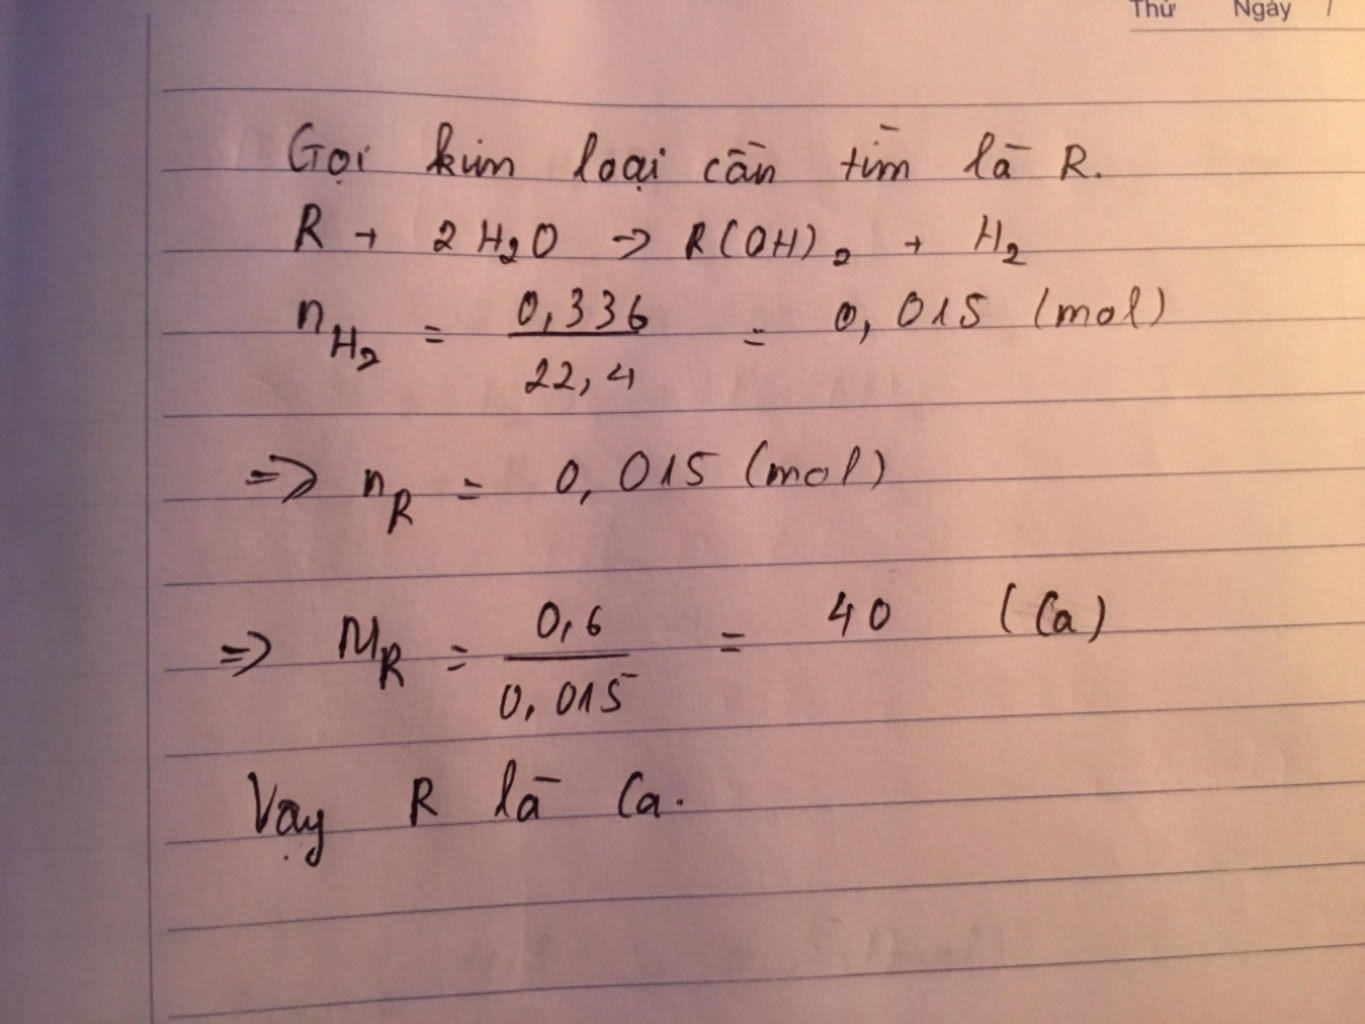 Thứ Ngày /
Gọi kim loại cần tìm là R.
R + 2 H₂O → R(OH)₂ + H₂
n_H₂ = 0,336 / 22,4 = 0,015 (mol)
=> n_R = 0,015 (mol)
=> M_R = 0,6 / 0,015 = 40 (Ca)
Vạy R là Ca.